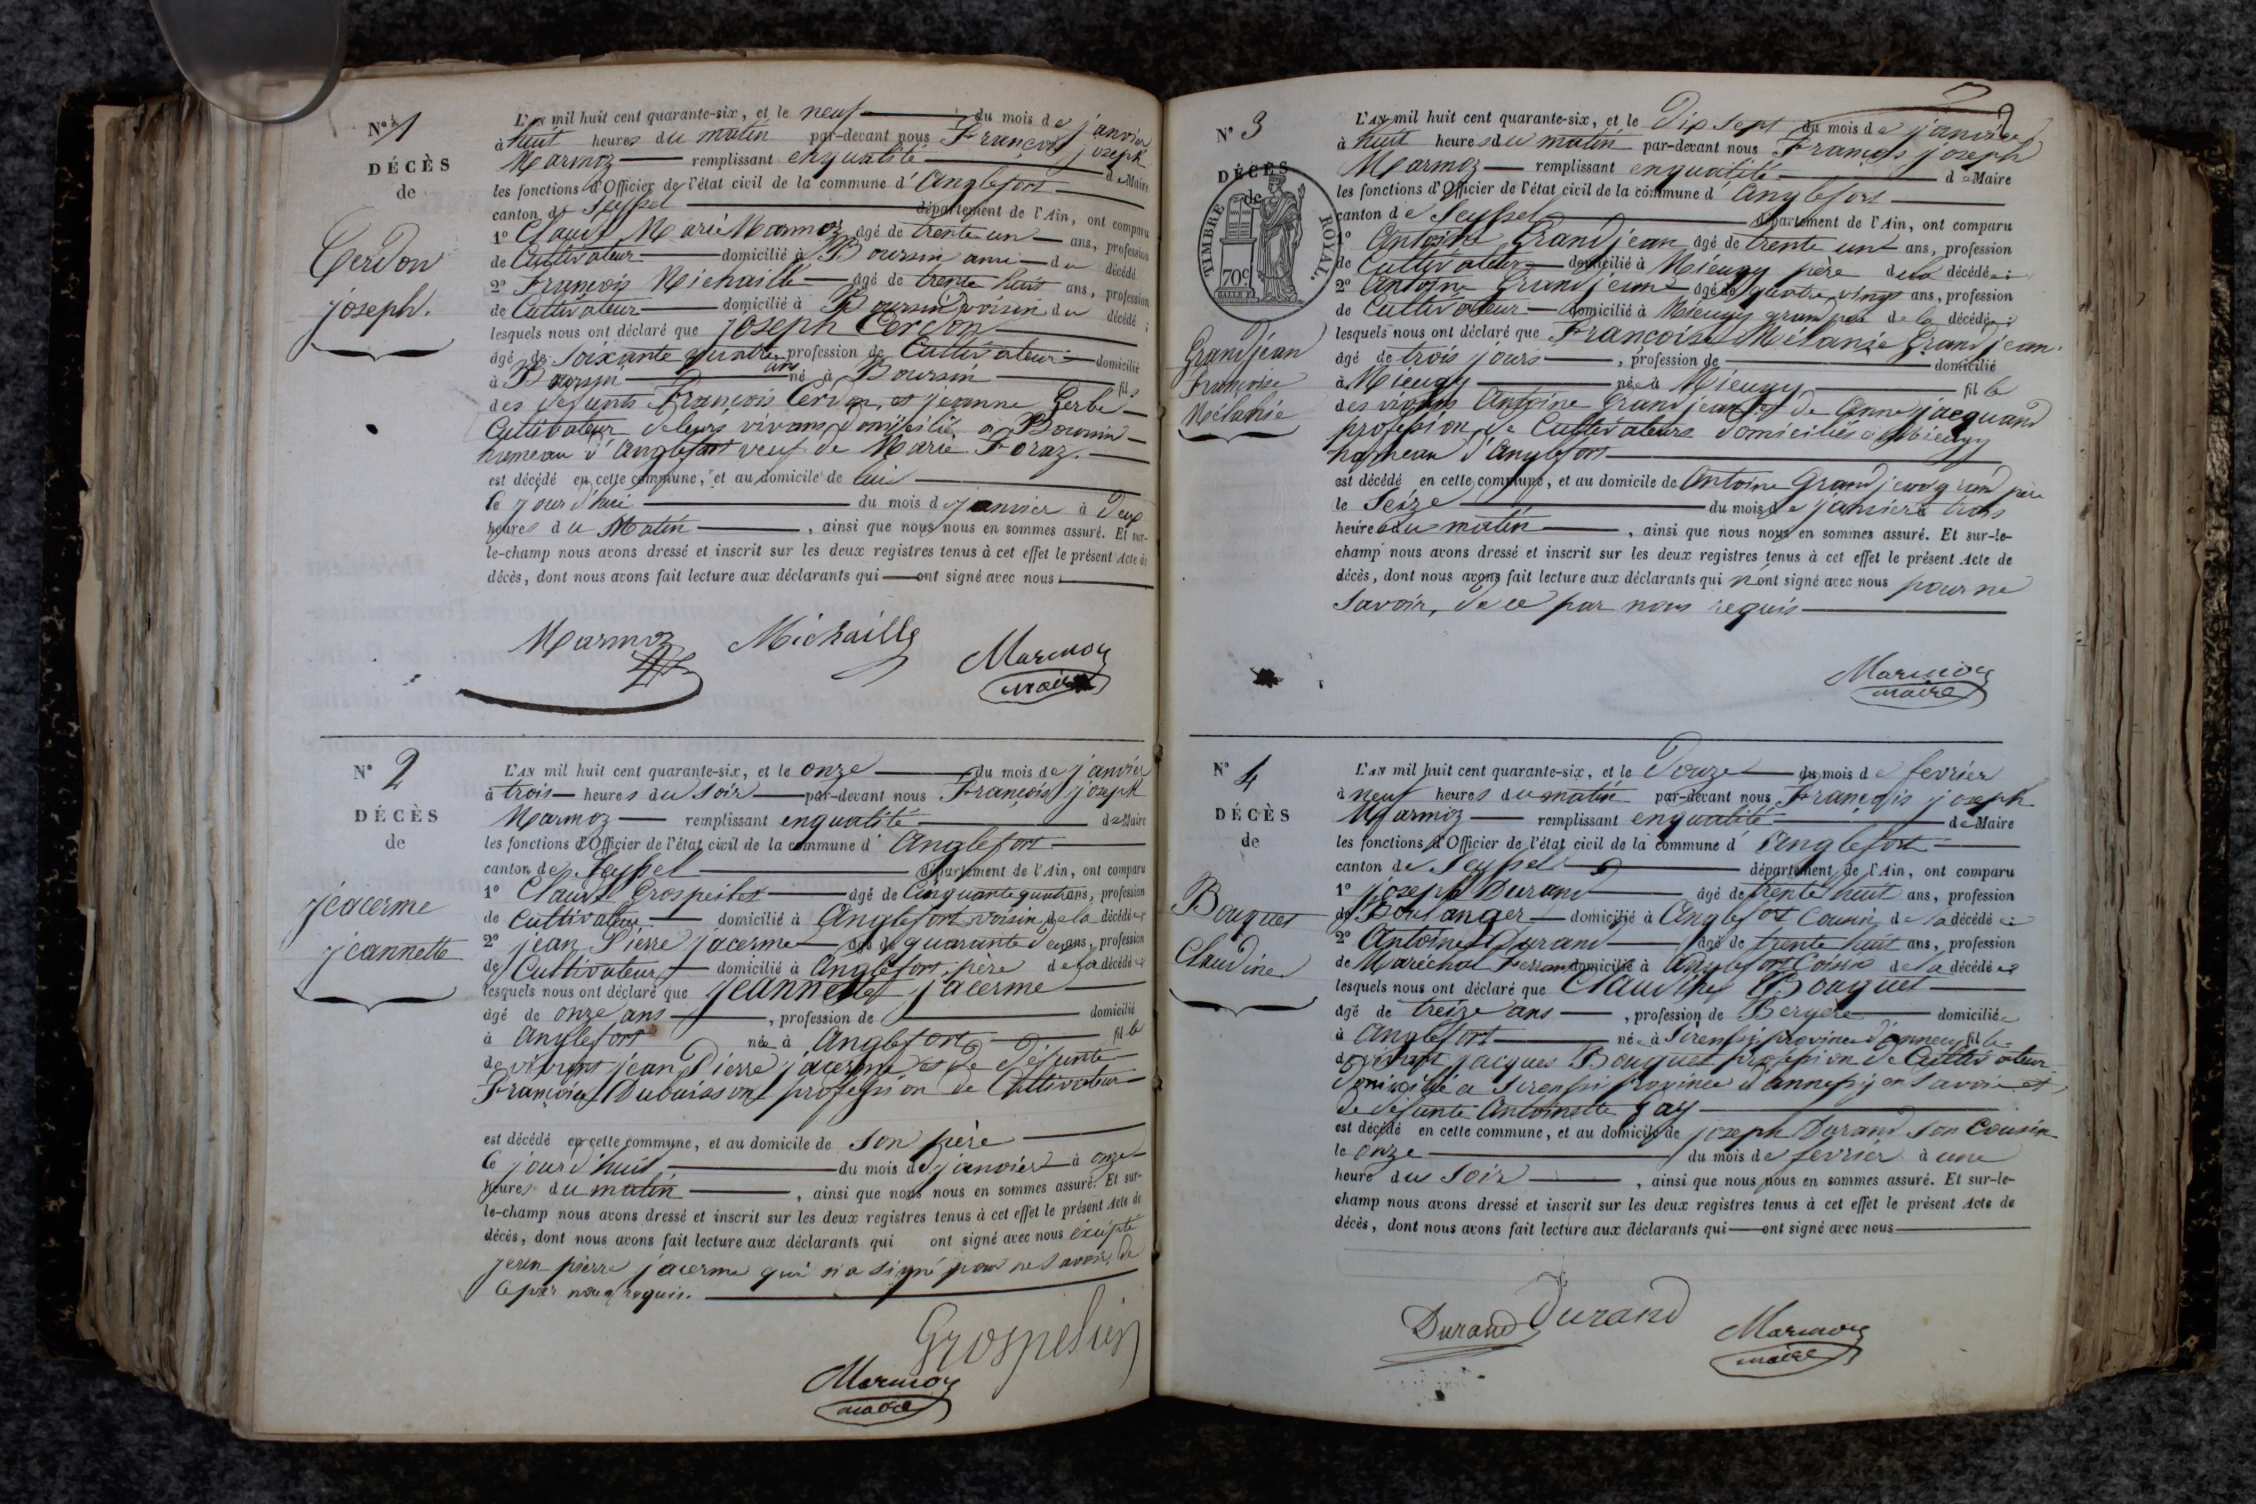 N° 1
DÉCÈS
de
Cerdon
joseph.
L'AN mil huit cent quarante-six, et le neuf du mois de janvier
à huit heures du matin par-devant nous François joseph
Marmoz remplissant enqualité de Maire
les fonctions d'Officier de l'état civil de la commune d'Anglefort
canton de Seyssel département de l'Ain, ont comparu
1° Claude Marie Marmoz âgé de trente un ans, profession
de Cultivateur domicilié à Boursin ami du décédé
2° François Michaille âgé de trente huit ans, profession
de Cultivateur domicilié à Boursin voisin du décédé ;
lesquels nous ont déclaré que joseph Cerdon
âgé de soixante quatre ans profession de Cultivateur domicilié
à Boursin né à Boursin fils
des defunts François Cerdon et jeanne Gerbe
Cultivateur deleurs vivans domicilié a Boursin
hameau d'Anglefort veuf de Marie Foraz.
est décédé en cette commune, et au domicile de lui
le jour d'hui du mois de janvier à deux
heures du Matin, ainsi que nous nous en sommes assuré. Et sur-
le-champ nous avons dressé et inscrit sur les deux registres tenus à cet effet le présent Acte de
décès, dont nous avons fait lecture aux déclarants qui ont signé avec nous
Marmoz Michaille Marmoz
maire
N° 2
DÉCÈS
de
jacerme
jeannette
L'AN mil huit cent quarante-six, et le onze du mois de janvier
à trois heures du soir par-devant nous François joseph
Marmoz remplissant enqualité de Maire
les fonctions d'Officier de l'état civil de la commune d'Anglefort
canton de Seyssel département de l'Ain, ont comparu
1° Claude âgé de Cinquante ans, profession
de Cultivateur domicilié à Anglefort voisin de la décédée
2° jean Pierre jacerme âgé de quarante deux ans, profession
de Cultivateur domicilié à Anglefort père de la décédée
lesquels nous ont déclaré que jeannette jacerme
âgé de onze ans, profession de domicilié
à Anglefort née à Anglefort fille
de vivant jean Pierre jacerme et de défunte
Françoise Dubuisson profession de Cultivateur
est décédé en cette commune, et au domicile de son père
le jour d'hui du mois de janvier à onze
heures du matin, ainsi que nous nous en sommes assuré. Et sur-
le-champ nous avons dressé et inscrit sur les deux registres tenus à cet effet le présent Acte de
décès, dont nous avons fait lecture aux déclarants qui ont signé avec nous éxcépté
jean pierre jacerme qui n'a signé pour ne savoir, de
ce par nous requis.
Grospelier
Marmoz
maire
2
N° 3
DÉCÈS
de
TIMBRE ROYAL.
70c
Grandjean
Francoise
Mélanie
L'AN mil huit cent quarante-six, et le Dix sept du mois de janvier
à huit heures du matin par-devant nous François joseph
Marmoz remplissant enqualité de Maire
les fonctions d'Officier de l'état civil de la commune d'Anglefort
canton de Seyssel département de l'Ain, ont comparu
1° Antoine Grandjean âgé de trente un ans, profession
de Cultivateur domicilié à Mieugy père de la décédée ;
2° Antoine Grandjean âgé de quatre vingt ans, profession
de Cultivateur domicilié à Mieugy grand père de la décédée ;
lesquels nous ont déclaré que Francoise Mélanie Grandjean.
âgé de trois jours, profession de domicilié
à Mieugy née à Mieugy fille
des vivans Antoine Grandjean et de Anne jacquand
profession de Cultivateurs domiciliés à Mieugy
hameau d'Anglefort
est décédé en cette commune, et au domicile de Antoine Grandjean grand père
le Seize du mois de janvier à trois
heures du matin, ainsi que nous nous en sommes assuré. Et sur-le-
champ nous avons dressé et inscrit sur les deux registres tenus à cet effet le présent Acte de
décès, dont nous avons fait lecture aux déclarants qui n'ont signé avec nous pour ne
savoir, de ce par nous requis
Marmoz
maire
N° 4
DÉCÈS
de
Bouquet
Claudine
L'AN mil huit cent quarante-six, et le Douze du mois de fevrier
à neuf heures du matin par-devant nous François joseph
Marmoz remplissant enqualité de Maire
les fonctions d'Officier de l'état civil de la commune d'Anglefort
canton de Seyssel département de l'Ain, ont comparu
1° joseph Durand âgé de trente huit ans, profession
de Boulanger domicilié à Anglefort Cousin de la décédée
2° Antoine Durand âgé de trente huit ans, profession
de Maréchal domicilié à Anglefort de la décédée
lesquels nous ont déclaré que Claudine Bouquet
âgé de treize ans, profession de Bergère domiciliée
à Anglefort née à province d'annecy fille
de vivant jacques Bouquet profession de Cultivateur
domicilié a province d'annecy en Savoie et
de défunte Antoinette Gay
est décédé en cette commune, et au domicile de joseph Durand son Cousin
le onze du mois de fevrier à une
heure du soir, ainsi que nous nous en sommes assuré. Et sur-le-
champ nous avons dressé et inscrit sur les deux registres tenus à cet effet le présent Acte de
décès, dont nous avons fait lecture aux déclarants qui ont signé avec nous
Durand Durand Marmoz
maire